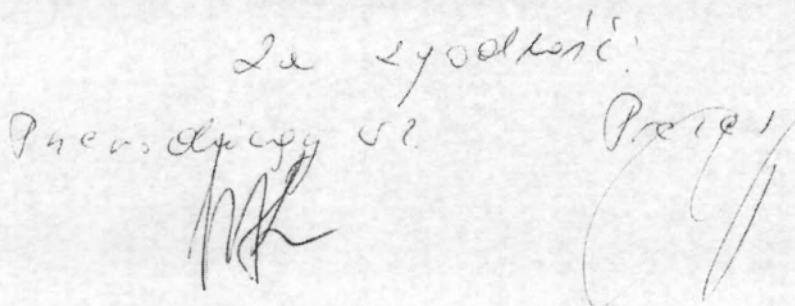 Za zgodność:
Przewodniczący Prezes